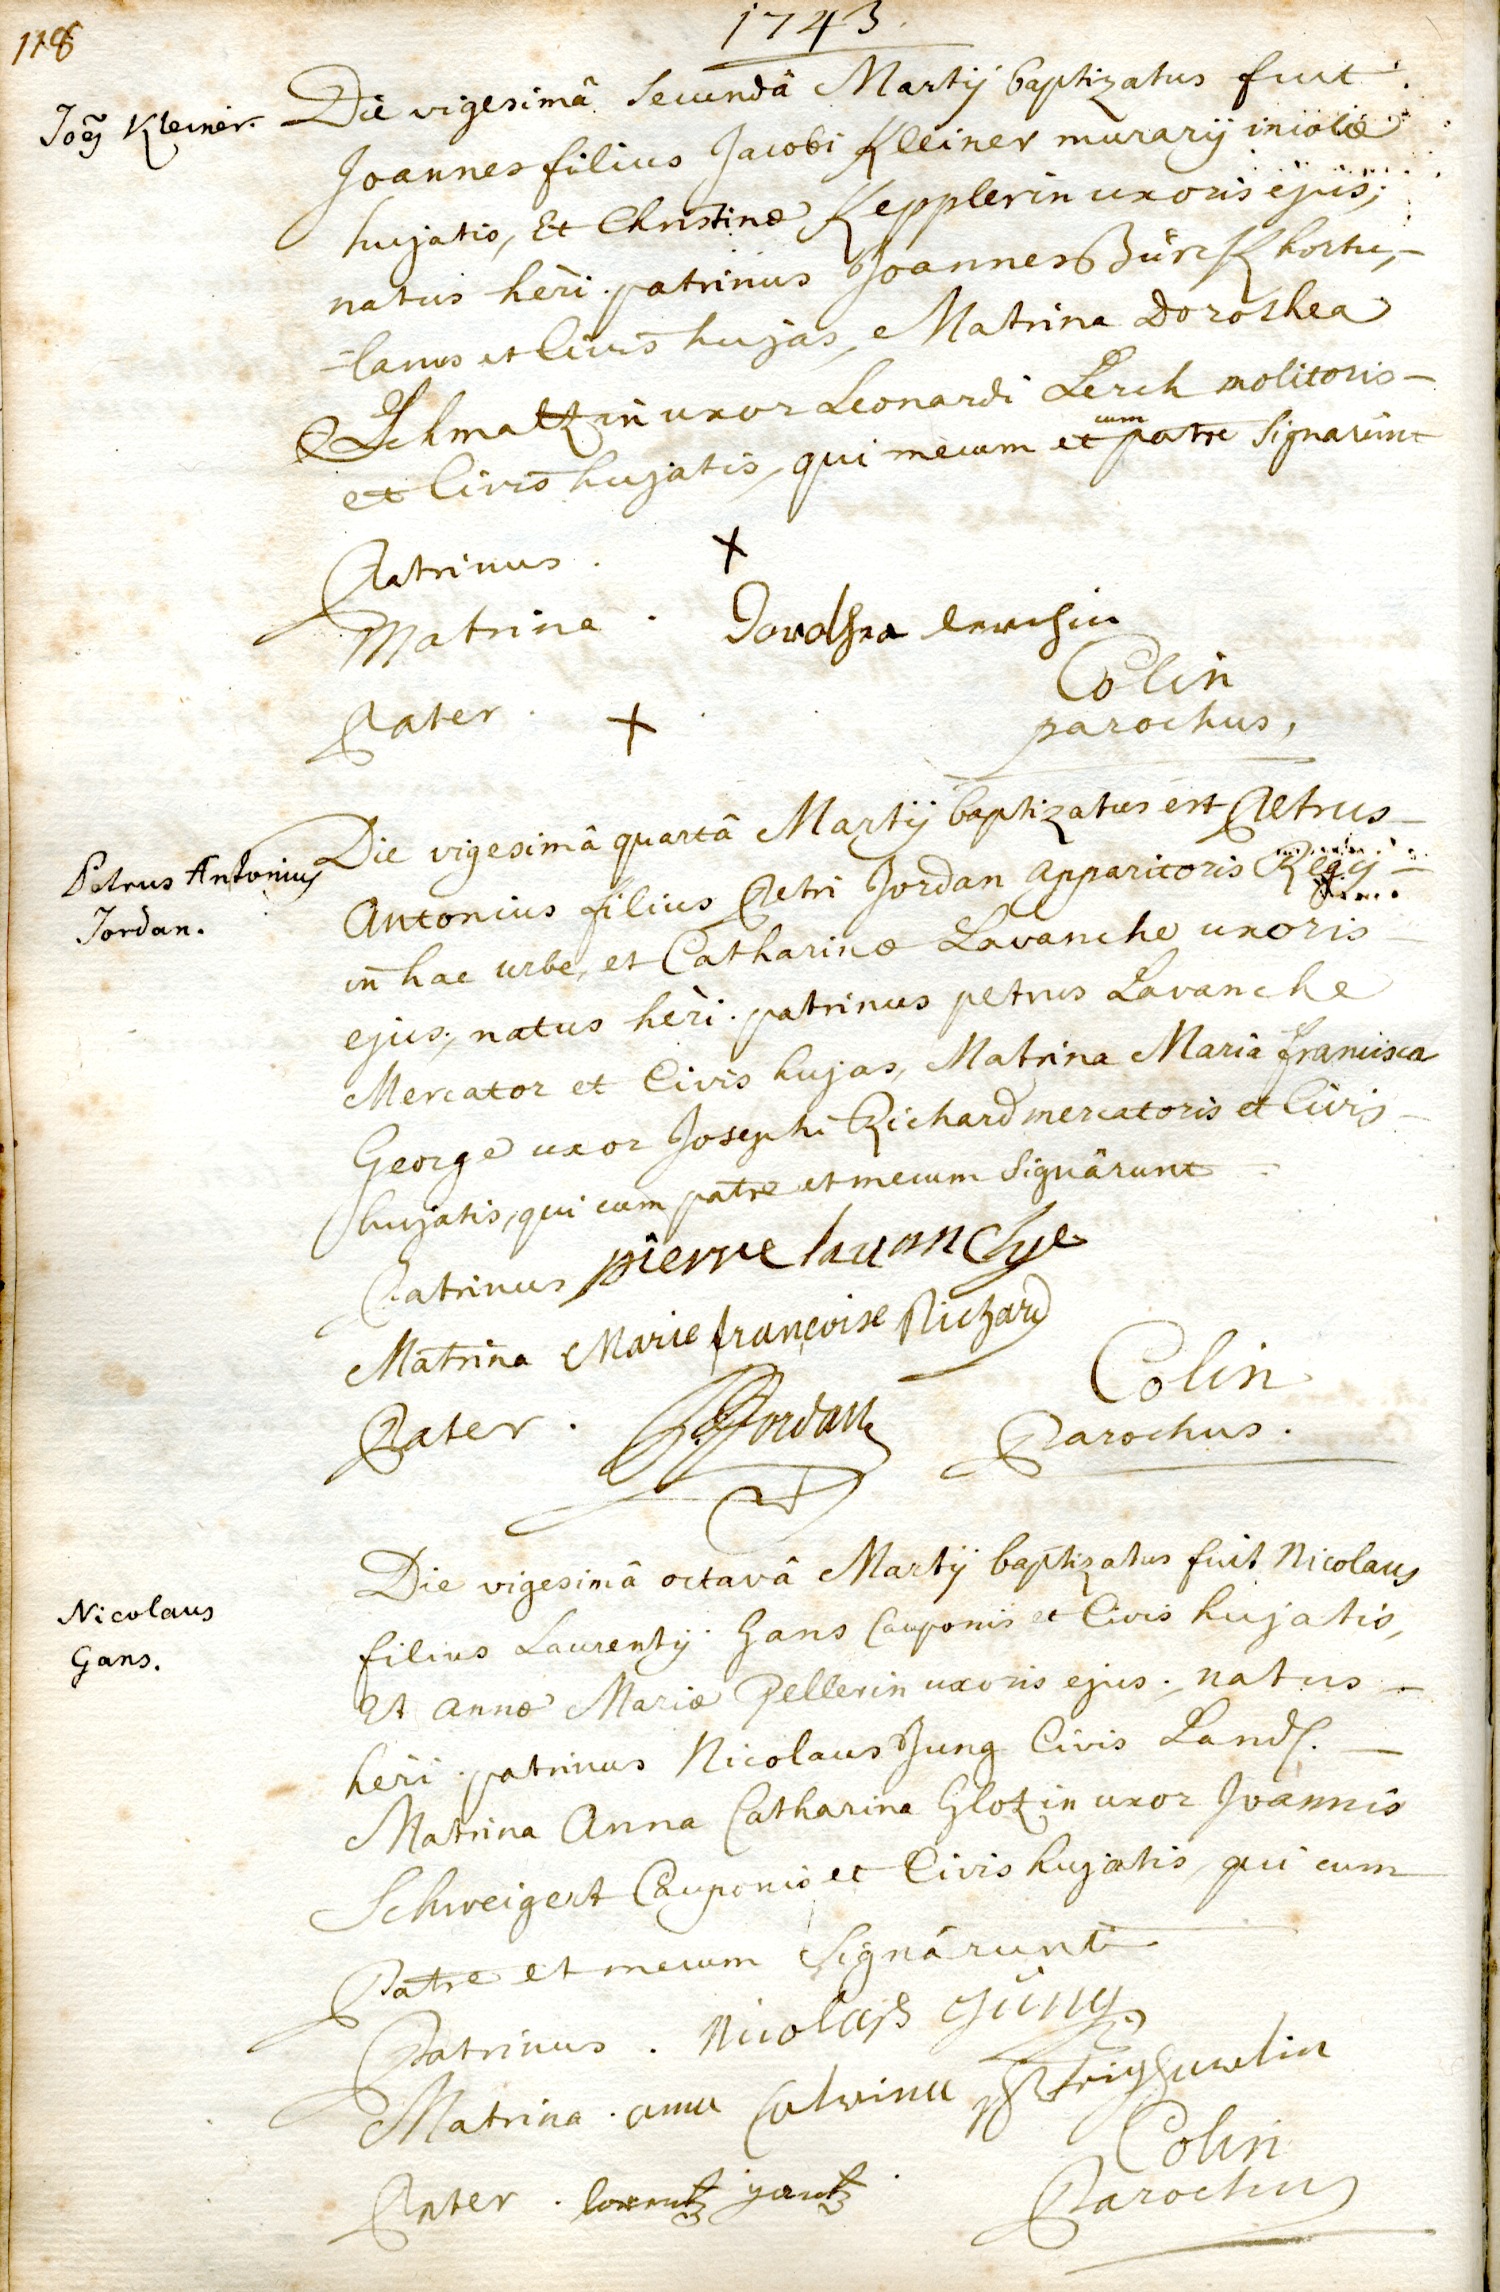 118
1743
Joēs Kleiner.
Die vigesimâ secundâ Martij baptizatus fuit
Joannes filius Jacobi Kleiner murarij incolæ
hujatis, Et Christinæ Kepplerin uxoris ejus;
natus hèri. patrinus Joannes Bürck hortu,-
=lanus et Civis hujas, Matrina Dorothea
Schmaltzin uxor Leonardi Lerch molitoris-
et Civis hujatis, qui mecum et cum patre signarunt
Patrinus. X
Matrina. Dorothea lerchin
Pater. X
Colin
parochus,
Petrus Antonius
Jordan.
Die vigesimâ quartâ Martij baptizatus est Petrus-
Antonius filius Petri Jordan apparitoris Regij-
in hac urbe, et Catharinæ Lavanche uxoris
ejus; natus hèri. patrinus petrus Lavanche
Mercator et Civis hujas, Matrina Maria francisca
George uxor Josephi Richard mercatoris et Civis-
hujatis, qui cum patre et mecum signârunt
Patrinus pierre lavanchye
Matrina Marie françoise Richard
Pater. Jordan
Colin
Parochus.
Nicolaus
Gans.
Die vigesimâ octavâ Martij baptizatus fuit Nicolaus
filius Laurentij Gans Cauponis et Civis hujatis,
Et annæ Mariæ Pellerin uxoris ejus; natus-
hèri. patrinus Nicolaus Jung Civis Land.
Matrina Anna Catharina Glotzin uxor Joannis
Schweigert Cauponis et Civis hujatis, qui cum
Patre et mecum signârunt
Patrinus. Nicolaß Jüng
Matrina. anna
Pater. lorentz gantz
Colin
Parochus